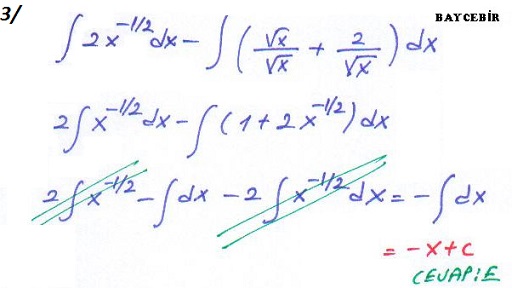 3/ BAYCEBİR
∫ 2x^{-1/2} dx - ∫ ( √x/√x + 2/√x ) dx
2∫ x^{-1/2} dx - ∫ (1 + 2x^{-1/2}) dx
2∫ x^{-1/2} - ∫ dx - 2∫ x^{-1/2} dx = - ∫ dx
= -x+c
CEVAP:E